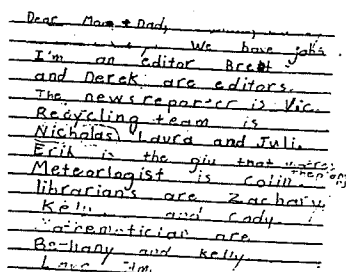 Dear Mom + Dad,
We have jobs.
I'm an editor Brett
and Derek are editors.
The newsreporter is Vic.
Recycling team is
Nicholas, Laura and Juli.
Erik is the giu that
Meteorologist is Colin.
librarians are Zachary
Kelly and Cody.
are
Bethany and Kelly
Love